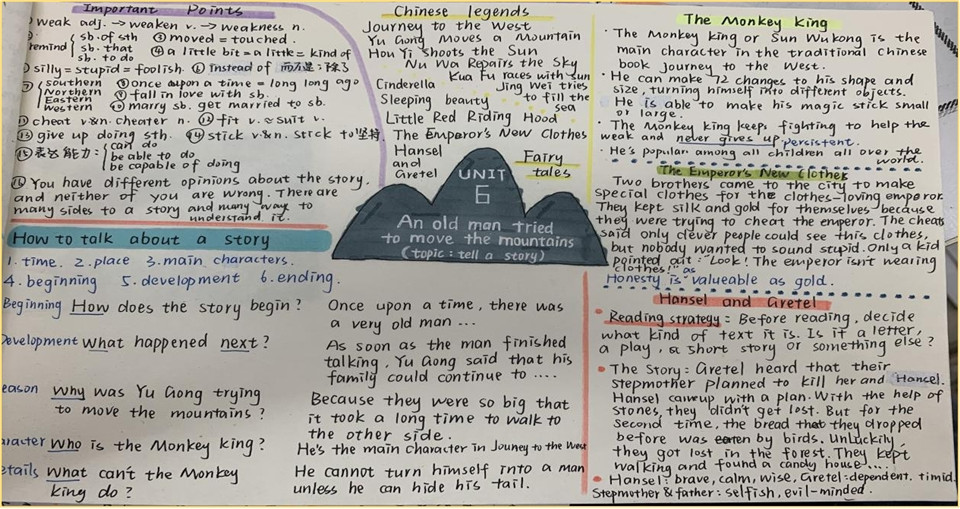 Important Points
weak adj. → weaken v. → weakness n.
remind
sb. of sth
sb. that
sb. to do
③ moved = touched.
④ a little bit = a little = kind of
silly = stupid = foolish.
⑥ instead of 而不是;除了
southern
Northern
Eastern
western
⑧ once upon a time = long long ago
⑨ fall in love with sb.
⑩ marry sb. get married to sb.
⑪ cheat v&n. cheater n.
⑫ fit v. ≈ suit v.
⑬ give up doing sth.
⑭ stick v&n. stick to 坚持
⑮ 表达能力:
can do
be able to do
be capable of doing
⑯ You have different opinions about the story.
and neither of you are wrong. There are
many sides to a story and many way to
understand it.
Chinese legends
Journey to the West
Yu Gong Moves a Mountain
Hou Yi Shoots the Sun
Nu Wa Repairs the Sky
Kua Fu races with sun
Jing Wei tries
to fill the
sea
Cinderella
Sleeping beauty
Little Red Riding Hood
The Emperor's New Clothes
Hansel
and
Gretel
Fairy
tales
UNIT
6
An old man tried
to move the mountains
(topic: tell a story)
How to talk about a story
1. time. 2. place 3. main characters.
4. beginning 5. development 6. ending.
Beginning How does the story begin?
Once upon a time, there was
a very old man ...
Development what happened next?
As soon as the man finished
talking, Yu Gong said that his
family could continue to ....
eason Why was Yu Gong trying
to move the mountains?
Because they were so big that
it took a long time to walk to
the other side.
aracter Who is the Monkey king?
He's the main character in Jouney to the West
etails What can't the Monkey
king do?
He cannot turn himself into a man
unless he can hide his tail.
The Monkey king
· The Monkey king or Sun Wukong is the
main character in the traditional Chinese
book journey to the West.
· He can make 72 changes to his shape and
size, turning himself into different objects.
He is able to make his magic stick small
or large.
· The Monkey king keeps fighting to help the
weak and never gives up. persistent.
· He's popular among all children all over the
world.
The Emperor's New Clothes
Two brothers came to the city to make
special clothes for the clothes-loving emperor.
They kept silk and gold for themselves because
they were trying to cheat the emperor. The cheats
said only clever people could see this clothes,
but nobody wanted to sound stupid. Only a kid
pointed out: "Look! The emperor isn't wearing
clothes!"
Honesty is as valueable as gold.
Hansel and Gretel
• Reading strategy: Before reading, decide
what kind of text it is. Is it a letter,
a play, a short story or something else?
• The Story: Gretel heard that their
stepmother planned to kill her and Hansel.
Hansel came up with a plan. With the help of
stones, they didn't get lost. But for the
second time, the bread that they dropped
before was eaten by birds. UnLuckily,
they got lost in the forest. They kept
walking and found a candy house....
• Hansel: brave, calm, wise, Gretel: dependent. timid.
Stepmother & father: selfish, evil-minded.